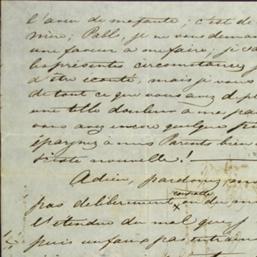 l'aveu de ma faute; c'est de
 je vous deman
une faveur à me faire, je
les présentes circonstances
d'être écouté, mais je vous
de tout ce que vous avez de pl
une telle douleur à me pa
vous avez encore quelque
épargnez à mes Parents bien
si triste nouvelle!
Adieu, pardonnez
pas délibérément ou de
l'étendue de mal que j
puis un faux pas entraîne